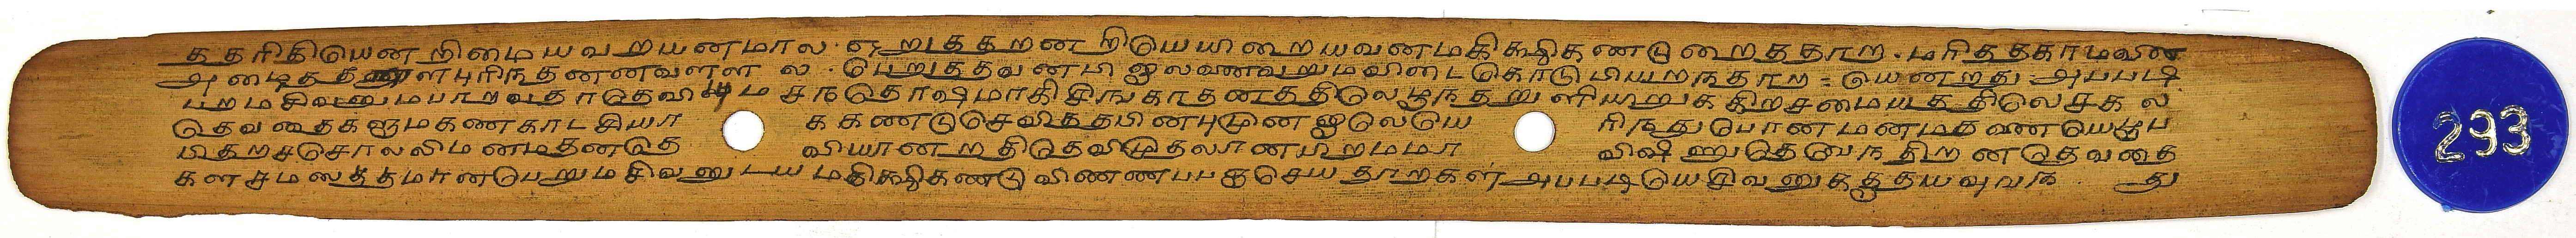 தத ரிதியென றிமையவறயனமால . ஏறுதத றன றியெயிறையவனமகிகூழிகணடுறைததாற . மரிததகாமவின
அமைதத புரிநதனனவளள ல . பெறுததவனபி ஐலவணவறுமவிடைகொடுபியறநதாற = யெனறது அபபடி
பறமசிவனுமபாறவதாதெவி ம சநதொஷமாகி சிஙகாதனததிலெழுநதறுளியிறுககிறசமையததிலெசக ல
தெவதைகளுமகணகாடசியா ககணடுசெவிததபினபுமுனஞலெயெ ரிநதுபோனமனமதணயெழுப
பிதறசசொலலிமனமதனதெ வியானறதிதெவிமுதலானபிறமமா விஷணுதெவெநதிறனதெவதை
களசமஸததமானபெறுமசிவனுடயமகிகூழிகணடுவிணணபபஞசெயதாறகள அபபடியெசிவனுககுதயவுவந து
293